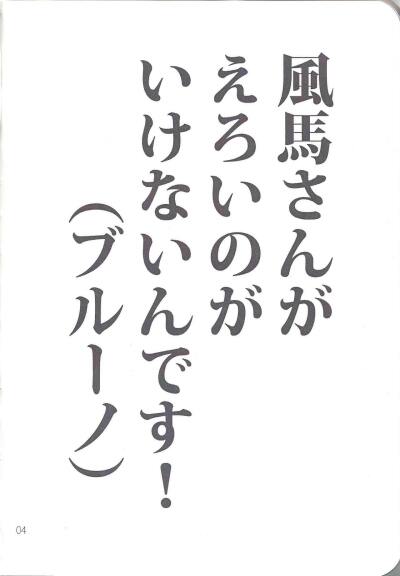 風馬さんが
えろいのが
いけないんです！
（ブルーノ）
04